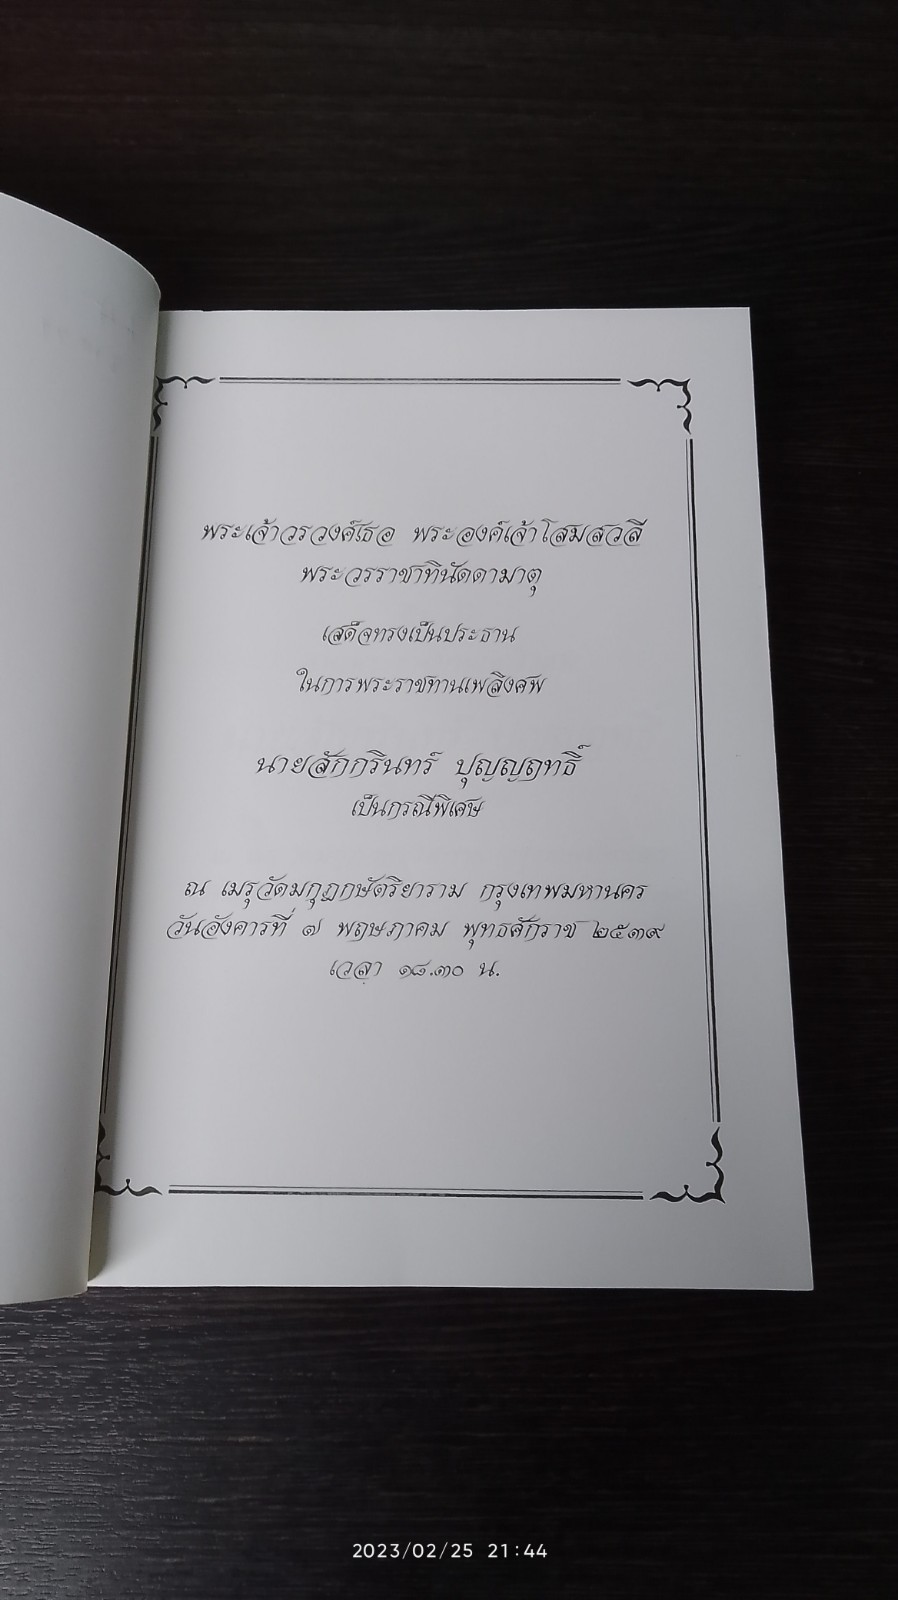 พระเจ้าวรวงศ์เธอ พระองค์เจ้าโสมสวลี
พระวรราชาทินัดดามาตุ
เสด็จทรงเป็นประธาน
ในการพระราชทานเพลิงศพ
นายสักกรินทร์ ปุญญฤทธิ์
เป็นกรณีพิเศษ
ณ เมรุวัดมกุฏกษัตริยาราม กรุงเทพมหานคร
วันอังคารที่ ๗ พฤษภาคม พุทธศักราช ๒๕๓๙
เวลา ๑๘.๓๐ น.
2023/02/25 21:44